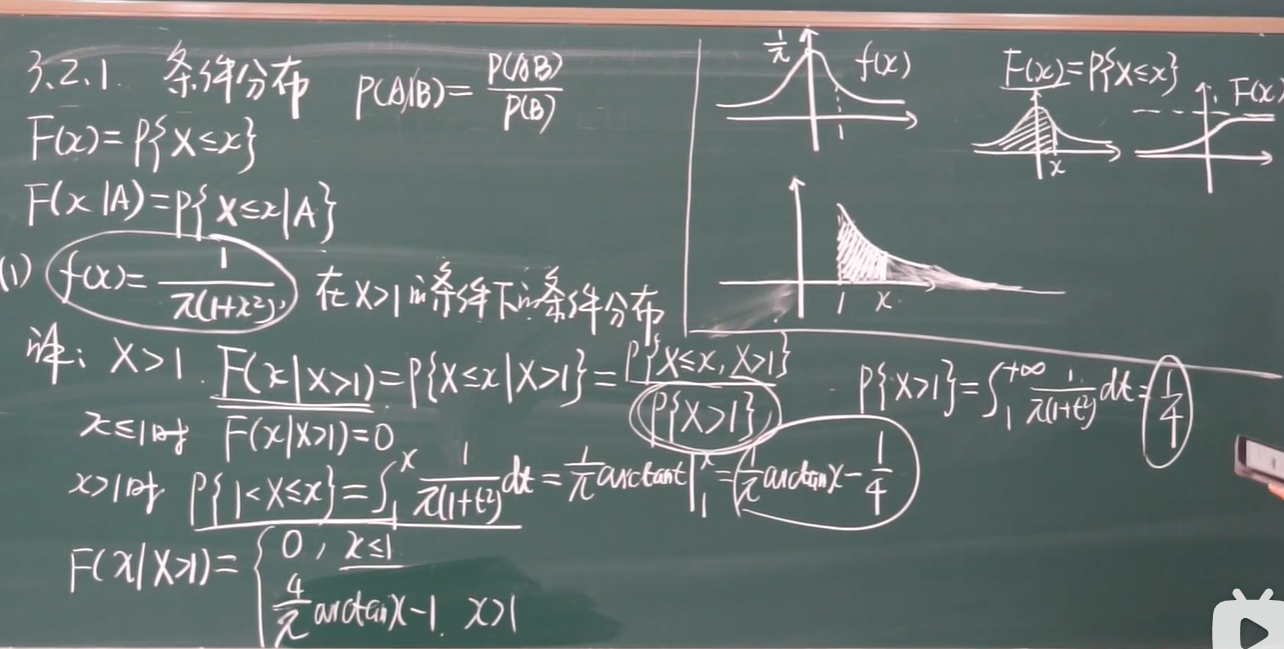 3.2.1. 条件分布 P(A|B)=P(AB)/P(B)
F(x)=P{X≤x}
F(x|A)=P{X≤x|A}
(1) f(x)=1/π(1+x²), 在X>1的条件下的条件分布
译: X>1. F(x|X>1)=P{X≤x|X>1}=P{X≤x, X>1}/P{X>1}
x≤1时 F(x|X>1)=0
x>1时 P{1<X≤x}=∫₁ˣ 1/π(1+t²) dt=1/π arctant|₁ˣ=1/π arctanx-1/4
F(x|X>1)={0, x≤1
4/π arctanx-1, x>1
1/π f(x)
1
F(x)=P{X≤x}
x
F(x)
1 x
P{X>1}=∫₁⁺∞ 1/π(1+t²) dt=1/4